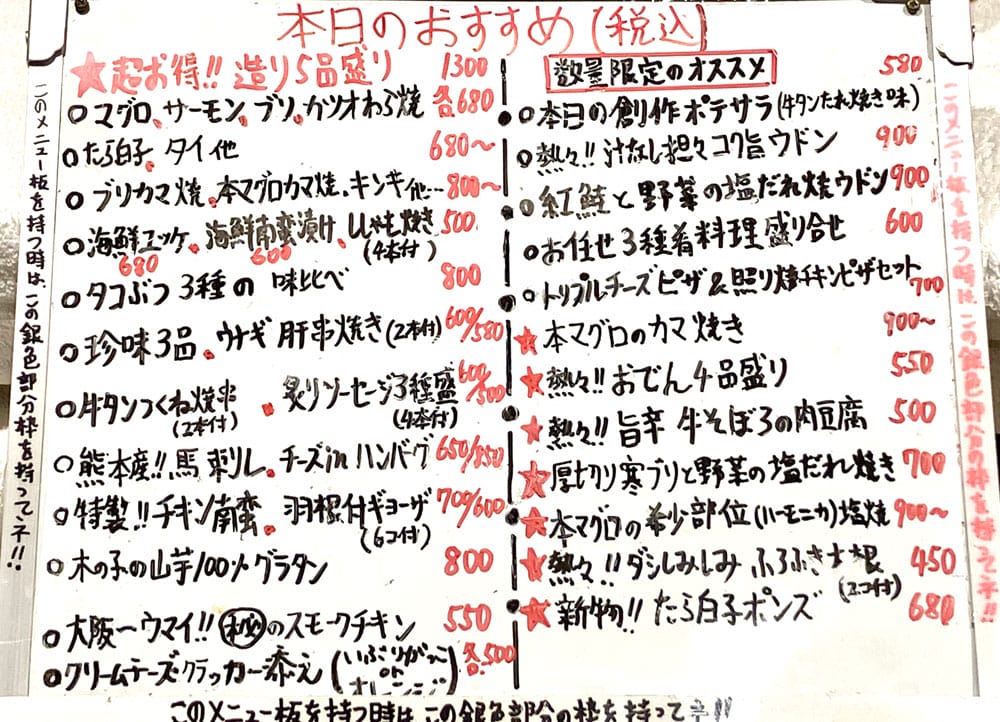 本日のおすすめ(税込)
★超お得!! 造り5品盛り 1300
○マグロ、サーモン、ブリ、カツオわら焼 各680
○たら白子、タイ他 680〜
○ブリカマ焼、本マグロカマ焼、キンキ他… 800〜
○海鮮ユッケ、海鮮南蛮漬け、ししゃも焼き 500
680 600 (4本付)
○タコぶつ3種の味比べ 800
○珍味3品、ウナギ肝串焼き(2本付) 600/580
○牛タンつくね焼串、炙りソーセージ3種盛 600/500
(2本付) (4本付)
○熊本産!!馬刺し、チーズinハンバーグ 650/550
○特製!!チキン南蛮、羽根付ギョーザ 700/600
(6コ付)
○木の子の山芋100%グラタン 800
○大阪〜ウマイ!!㊙のスモークチキン 550
○クリームチーズクラッカー添え(いぶりがっこ or オレンジ) 各500
数量限定のオススメ 580
○本日の創作ポテサラ(牛タンたれ焼き味)
○熱々!!汁なし担々コク旨ウドン 900
○紅鮭と野菜の塩だれ焼ウドン 900
○お任せ3種肴料理盛り合せ 600
○トリプルチーズピザ&照り焼チキンピザセット 700
★本マグロのカマ焼き 900〜
★熱々!!おでん4品盛り 550
★熱々!!旨辛 牛そぼろの肉豆腐 500
★厚切り寒ブリと野菜の塩だれ焼き 700
★本マグロの希少部位(ハーモニカ)塩焼 900〜
★熱々!!ダシしみしみ ふろふき大根 450
(2コ付)
★新物!!たら白子ポンズ 680
このメニュー板を持つ時は、この銀色部分枠を持ってネ!!
このメニュー板を持つ時は、この銀色部分の枠を持ってネ!!
このメニュー板を持つ時は、この銀色部分の枠を持ってネ!!